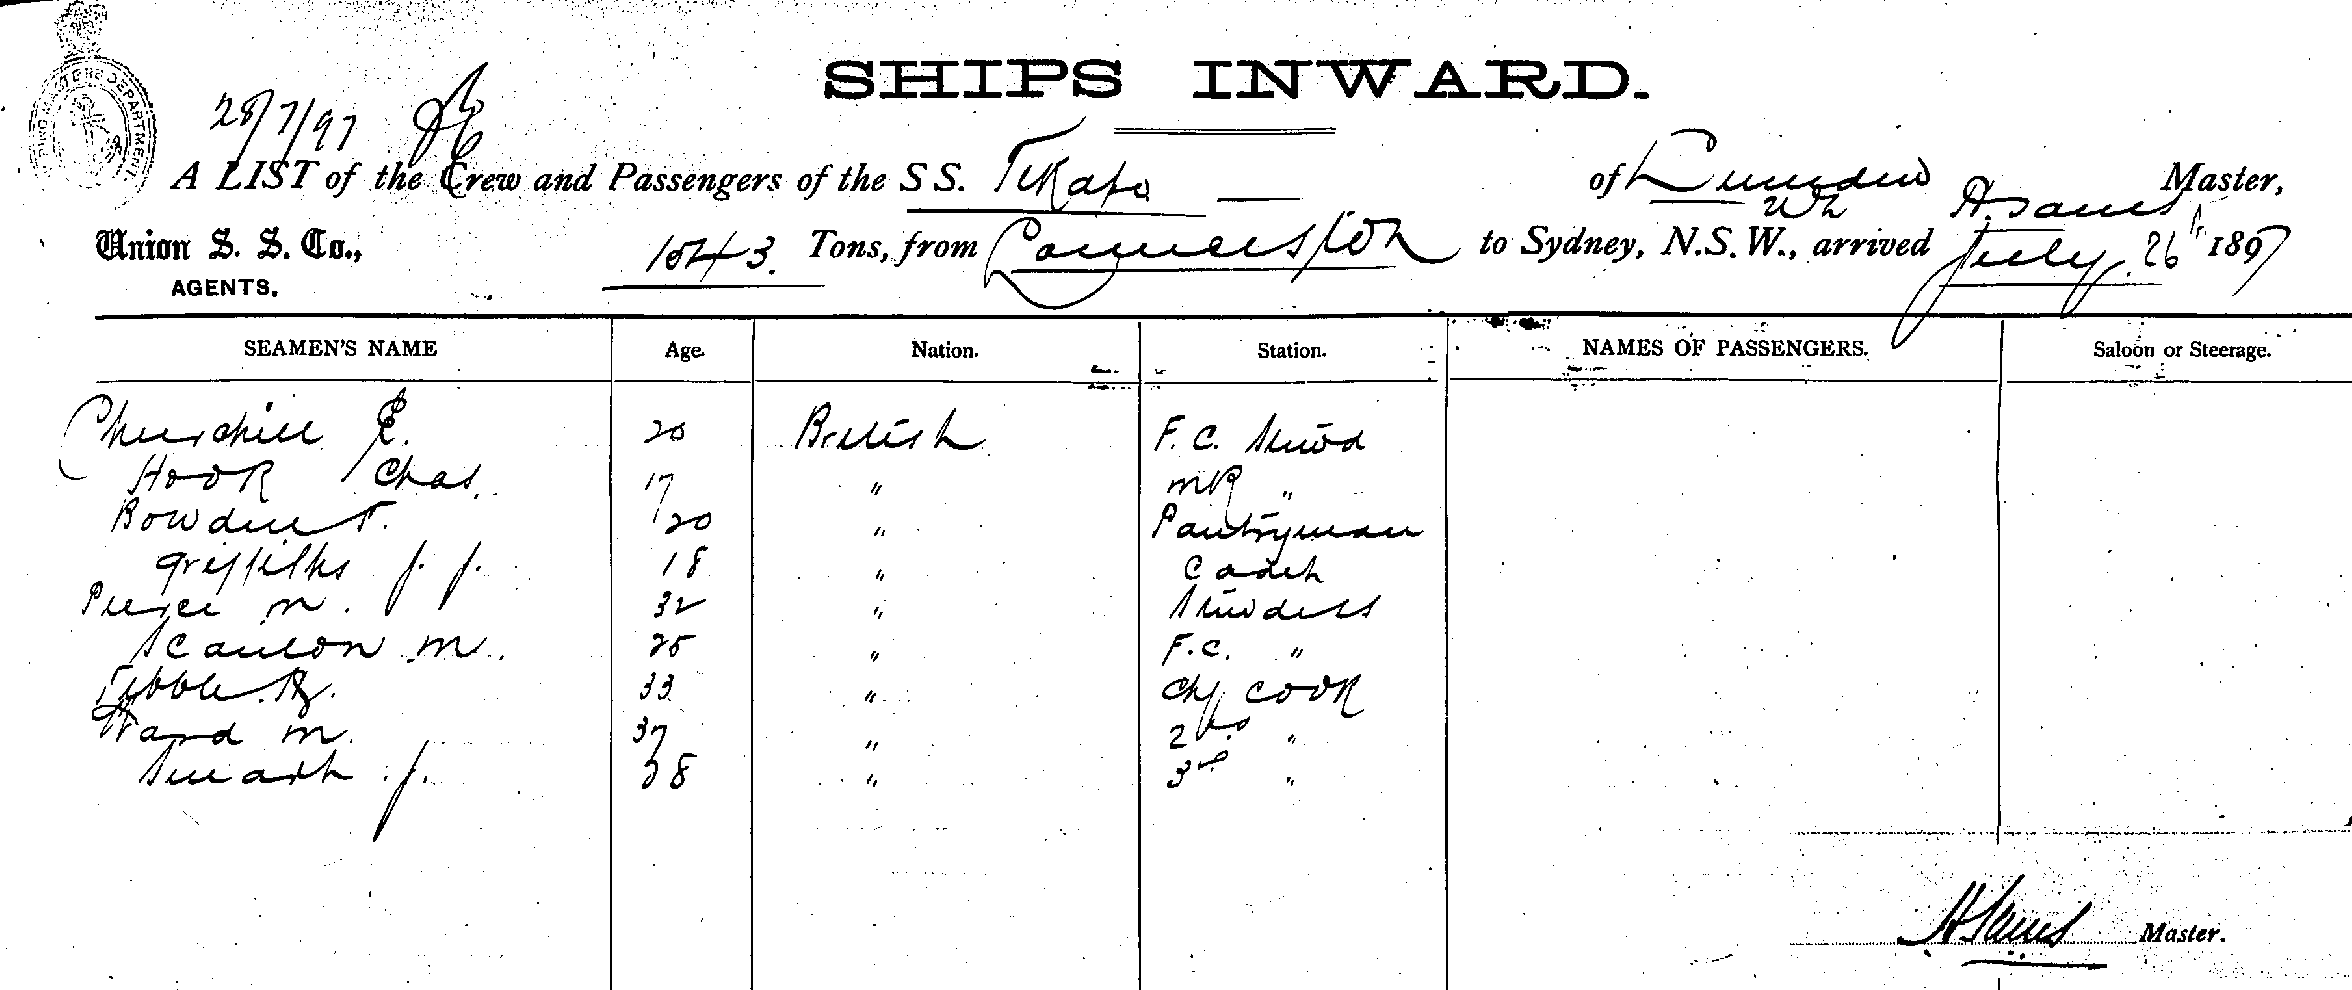 SHIPS INWARD.
28/7/97
A LIST of the Crew and Passengers of the SS. Tekapo of Dunedin A. James Master,
Union S. S. Co., 1543 Tons, from to Sydney, N.S.W., arrived July 26th 1897
AGENTS.
SEAMEN'S NAME Age. Nation. Station. NAMES OF PASSENGERS. Saloon or Steerage.
Churchill E. 20 British F. C. Stewd
Hook Chas. 17 " MR "
Bowden T. 20 " Pantryman
Griffiths J. J. 18 "
Pierce M. 32 " Stewdess
Scanlon M. 25 " F.C. "
Tibble R. 33 " Chf Cook
Ward M. 37 " 2nd "
J. 38 " 3rd "
Master.